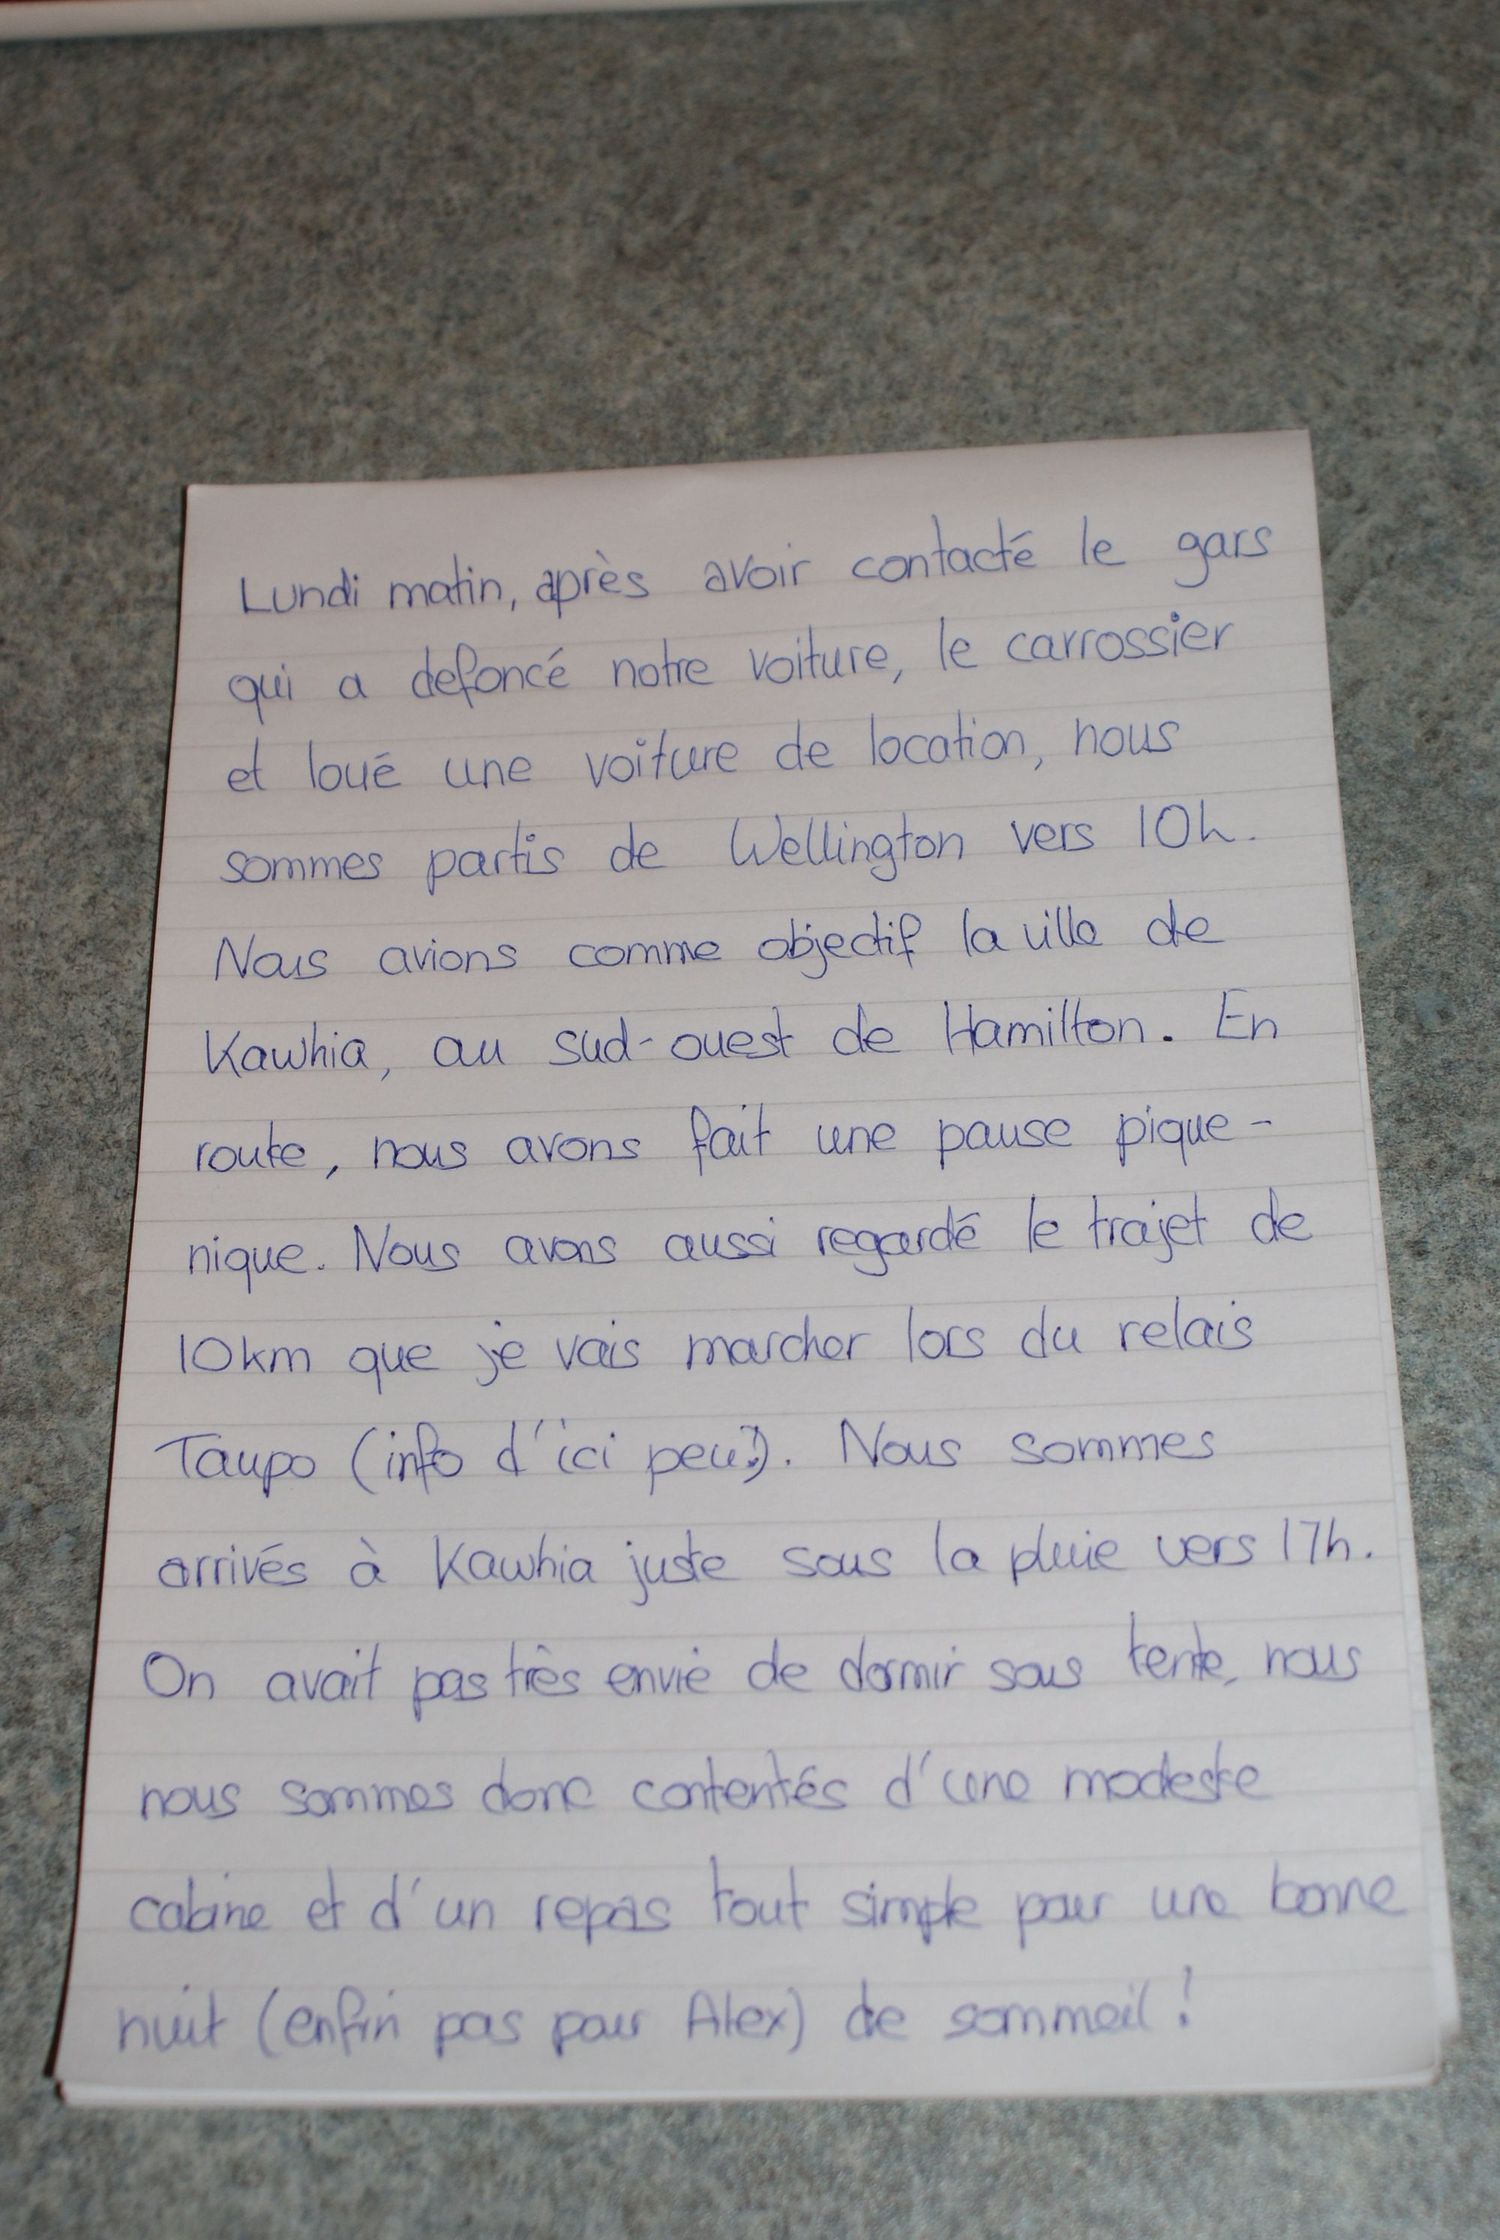 Lundi matin, après avoir contacté le gars
qui a defoncé notre voiture, le carrossier
et loué une voiture de location, nous
sommes partis de Wellington vers 10h.
Nous avions comme objectif la ville de
Kawhia, au sud-ouest de Hamilton. En
route, nous avons fait une pause pique-
nique. Nous avons aussi regardé le trajet de
10km que je vais marcher lors du relais
Taupo (info d'ici peu!). Nous sommes
arrivés à Kawhia juste sous la pluie vers 17h.
On avait pas très envie de dormir sous tente, nous
nous sommes donc contentés d'une modeste
cabine et d'un repas tout simple pour une bonne
nuit (enfin pas pour Alex) de sommeil!